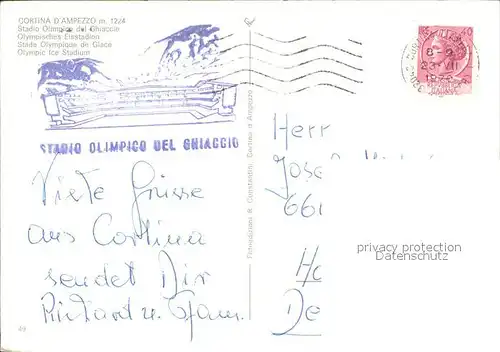 CORTINA D'AMPEZZO m. 1224
Stadio Olimpico del Ghiaccio
Olympisches Eisstadion
Stade Olympique de Glace
Olympic Ice Stadium
STADIO OLIMPICO DEL GHIACCIO
Viele Grüsse
aus Cortina
sendet Dir
Richard u. Fam.
49
Fotoedizione R. Constantini, Cortina d'Ampezzo
40
8-9
23.VII
Herr
Jose
661
privacy protection
Datenschutz
De